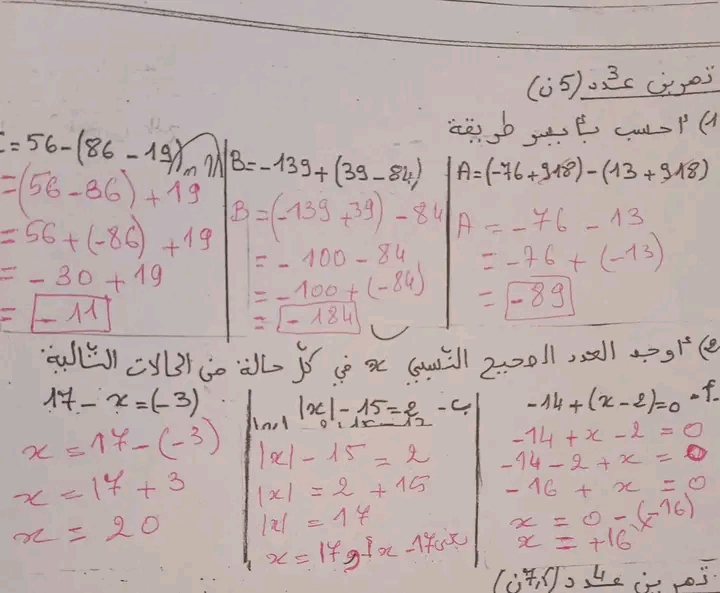 تمرين عدد 3 (5ن)
1) احسب بأيسر طريقة
A=(-76+918)-(13+918)
A = -76 - 13
= -76 + (-13)
= -89
B=-139+(39-84)
B = (-139+39) - 84
= - 100 - 84
= -100+(-84)
= - 184
C=56-(86-19)
=(56-86)+19
=56+(-86)+19
= - 30 + 19
= - 11
2) أوجد العدد الصحيح النسبي x في كلّ حالة من الحالات التّالية
أ- -14+(x-2)=0
-14+x-2=0
-14-2+x=0
-16+x=0
x=0-(-16)
x=+16
ب- |x|-15=2
|x|-15=2
|x|=2+15
|x|=17
x=17 أو x -17 يعني
17-x=(-3)
x=17-(-3)
x=17+3
x=20
تمرين عدد 4 (7,5ن)